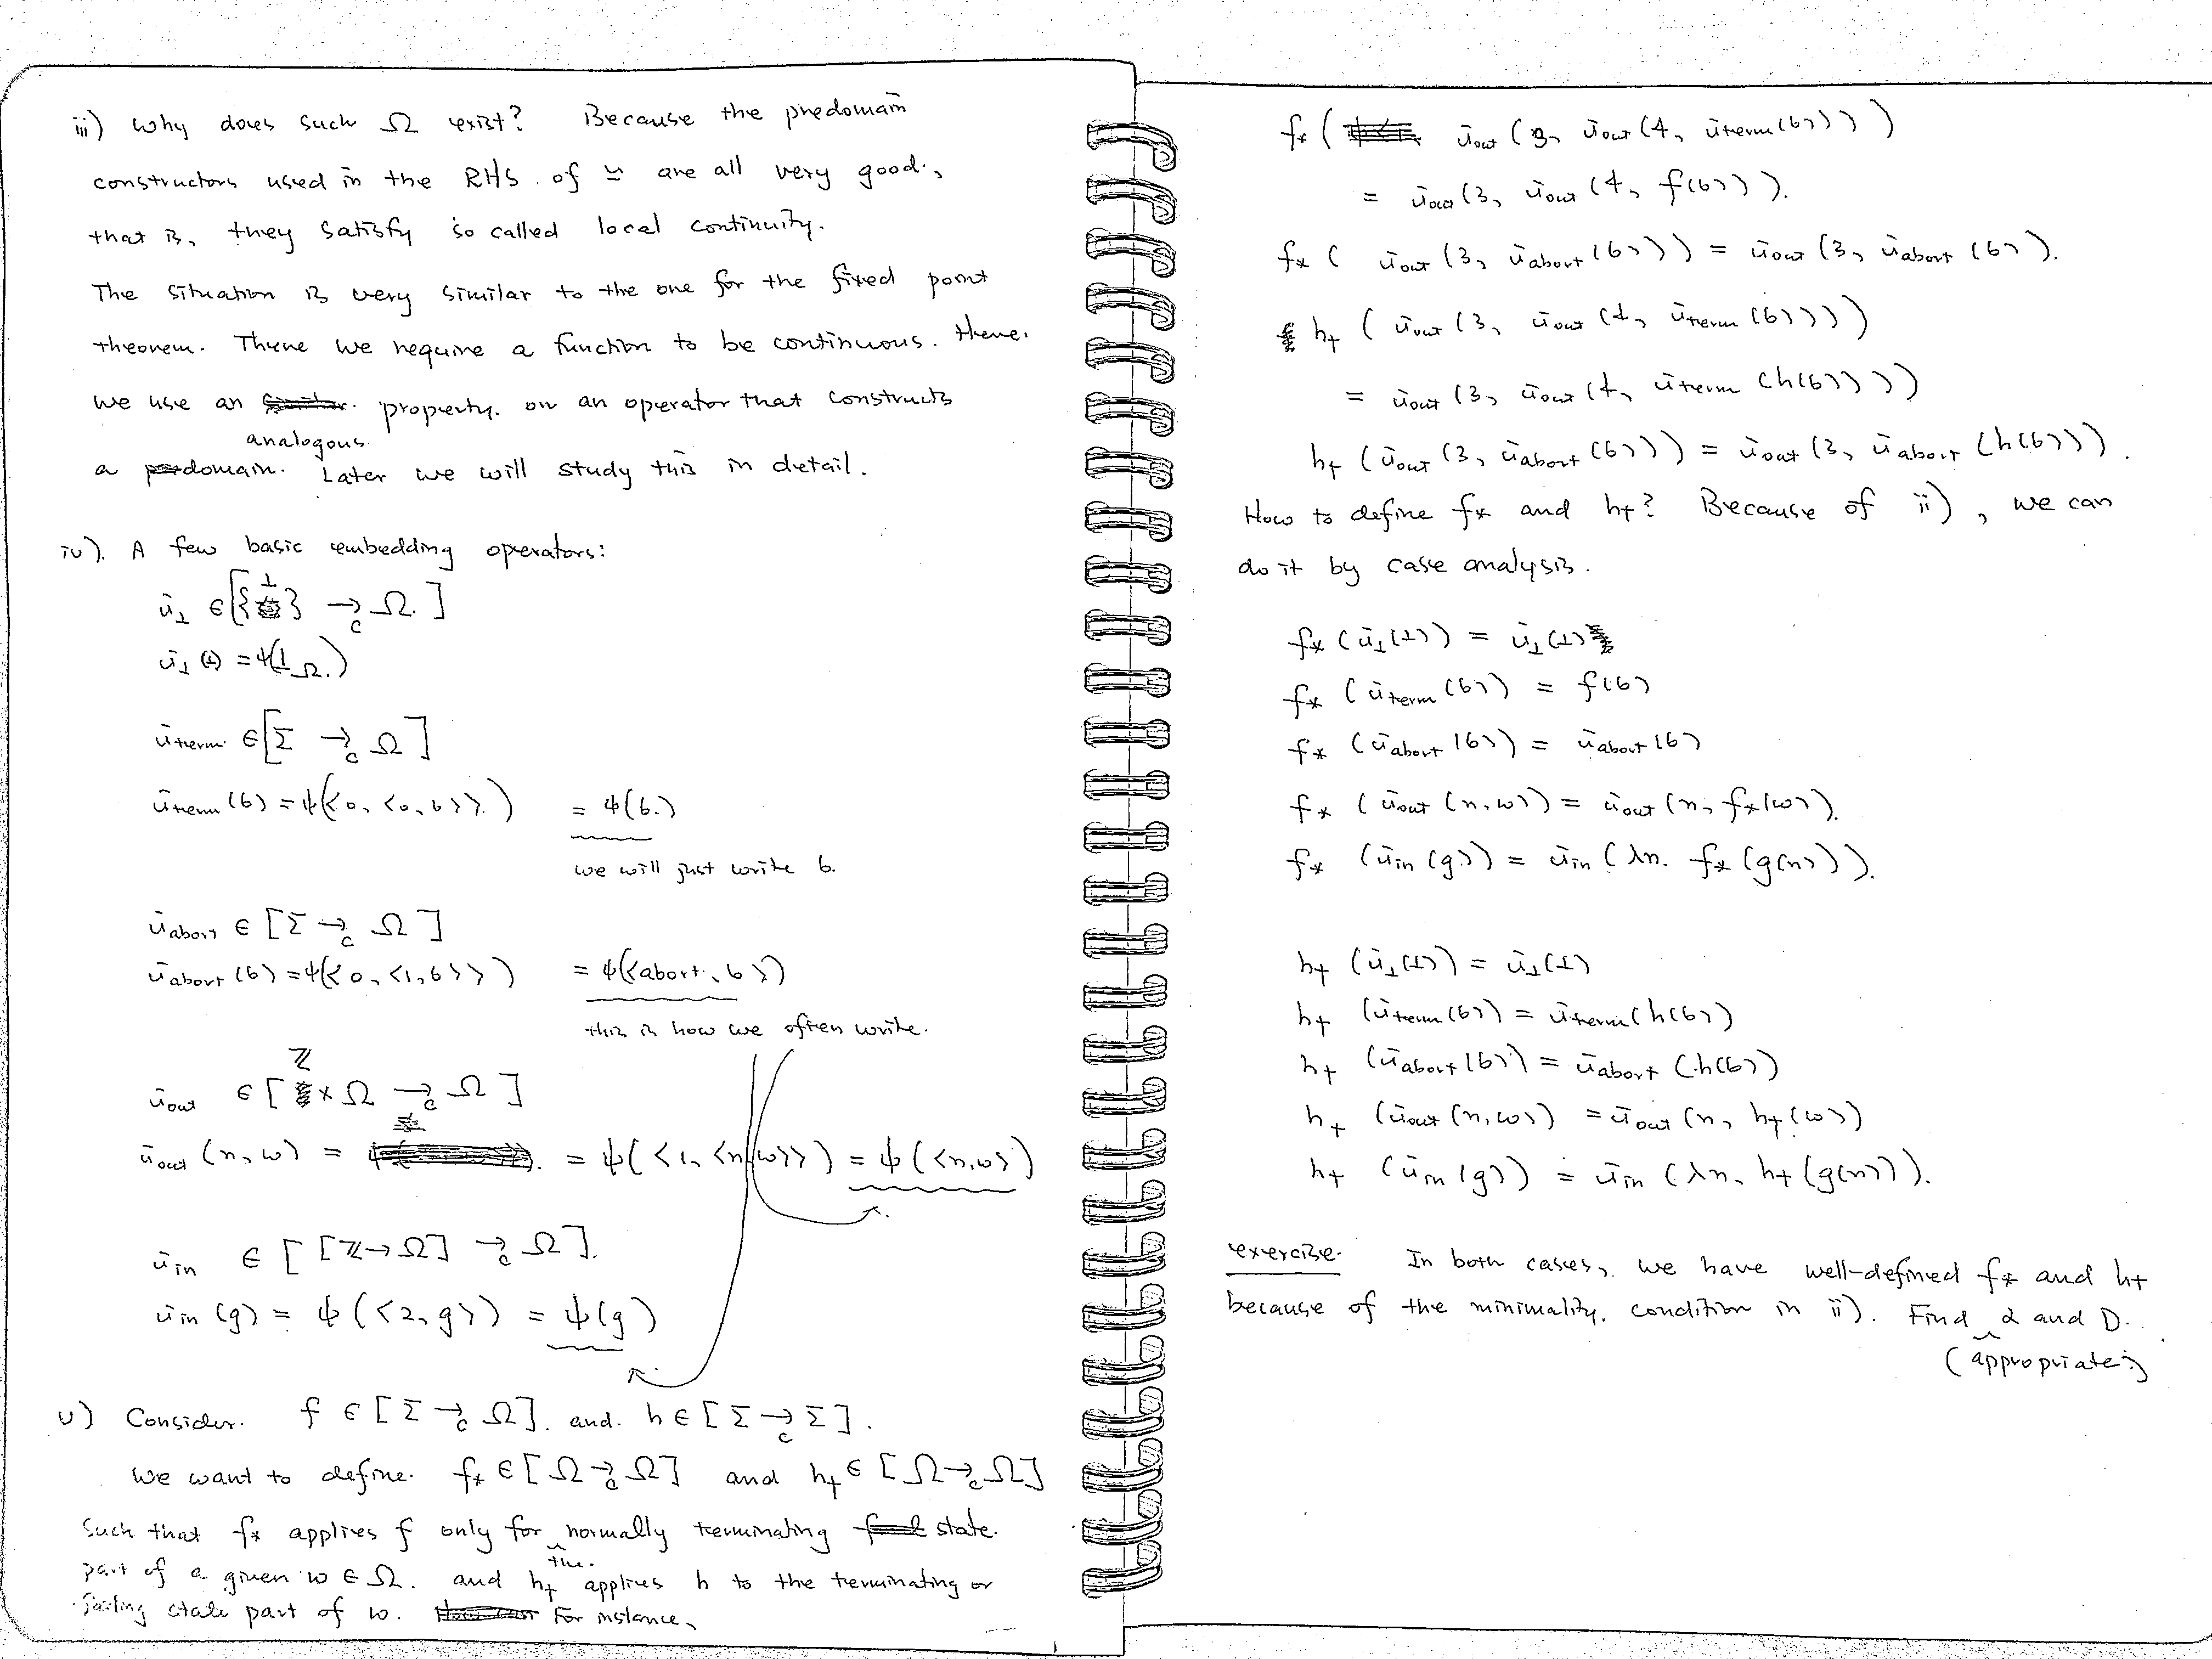 iii) Why does such Ω exist? Because the predomain
constructors used in the RHS of ≃ are all very good,
that is, they satisfy so called local continuity.
The situation is very similar to the one for the fixed point
theorem. There we require a function to be continuous. Here,
we use an property on an operator that constructs
analogous
a domain. Later we will study this in detail.
iv). A few basic embedding operators:
ū⊥ ∈ [{⊥} →c Ω]
ū⊥(⊥) = ψ(⊥Ω)
ūterm ∈ [Σ →c Ω]
ūterm(σ) = ψ(<0, <0, σ>>) = ψ(σ)
we will just write σ.
ūabort ∈ [Σ →c Ω]
ūabort(σ) = ψ(<0, <1, σ>>) = ψ(<abort, σ>)
this is how we often write.
ℤ
ūout ∈ [ × Ω →c Ω]
ūout(n, ω) = = ψ(<1, <n, ω>>) = ψ(<n, ω>)
ūin ∈ [[ℤ → Ω] →c Ω].
ūin(g) = ψ(<2, g>) = ψ(g)
v) Consider f ∈ [Σ →c Ω] and h ∈ [Σ →c Σ].
We want to define f* ∈ [Ω →c Ω] and h† ∈ [Ω →c Ω]
such that f* applies f only for normally terminating state
the
part of a given ω ∈ Ω. and h† applies h to the terminating or
failing state part of ω. For instance,
f*( ūout(3, ūout(4, ūterm(σ))))
= ūout(3, ūout(4, f(σ))).
f*( ūout(3, ūabort(σ))) = ūout(3, ūabort(σ)).
h†(ūout(3, ūout(4, ūterm(σ))))
= ūout(3, ūout(4, ūterm(h(σ))))
h†(ūout(3, ūabort(σ))) = ūout(3, ūabort(h(σ))).
How to define f* and h†? Because of ii), we can
do it by case analysis.
f*(ū⊥(⊥)) = ū⊥(⊥)
f*(ūterm(σ)) = f(σ)
f*(ūabort(σ)) = ūabort(σ)
f*(ūout(n, ω)) = ūout(n, f*(ω)).
f*(ūin(g)) = ūin(λn. f*(g(n))).
h†(ū⊥(⊥)) = ū⊥(⊥)
h†(ūterm(σ)) = ūterm(h(σ))
h†(ūabort(σ)) = ūabort(h(σ))
h†(ūout(n, ω)) = ūout(n, h†(ω))
h†(ūin(g)) = ūin(λn. h†(g(n))).
exercise. In both cases, we have well-defined f* and h†
because of the minimality condition in ii). Find α and D.
(appropriate)